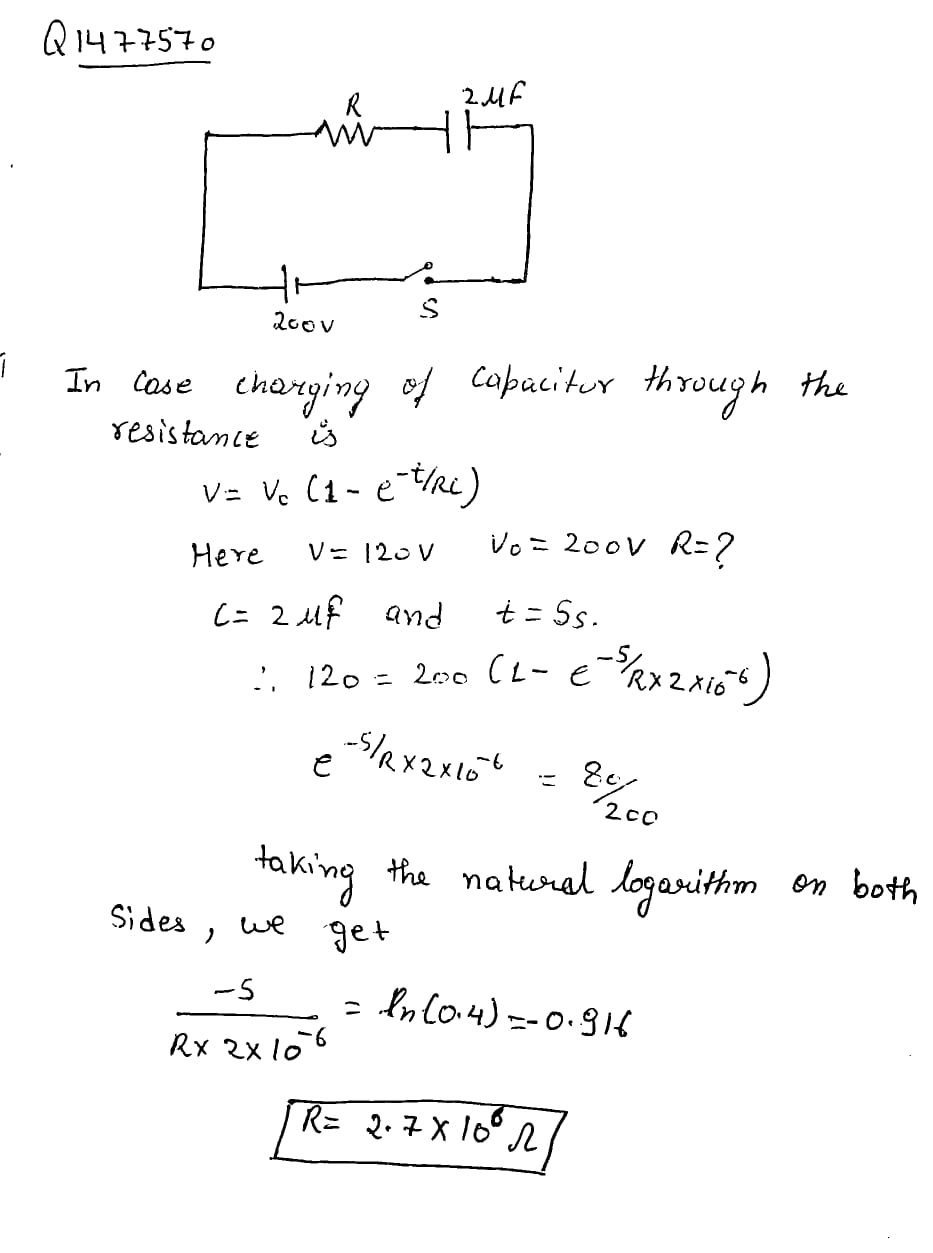 Q1477570
R
2 μf
200V
S
In Case charging of Capacitor through the
resistance is
V = Vc (1 - e^-t/RC)
Here V = 120V Vo = 200V R=?
C = 2 μf and t = 5s.
∴ 120 = 200 (1 - e^-5/R×2×10^-6)
e^-5/R×2×10^-6 = 80/200
taking the natural logarithm on both
Sides, we get
-5/R×2×10^-6 = ln(0.4) = -0.916
R = 2.7×10^6 Ω